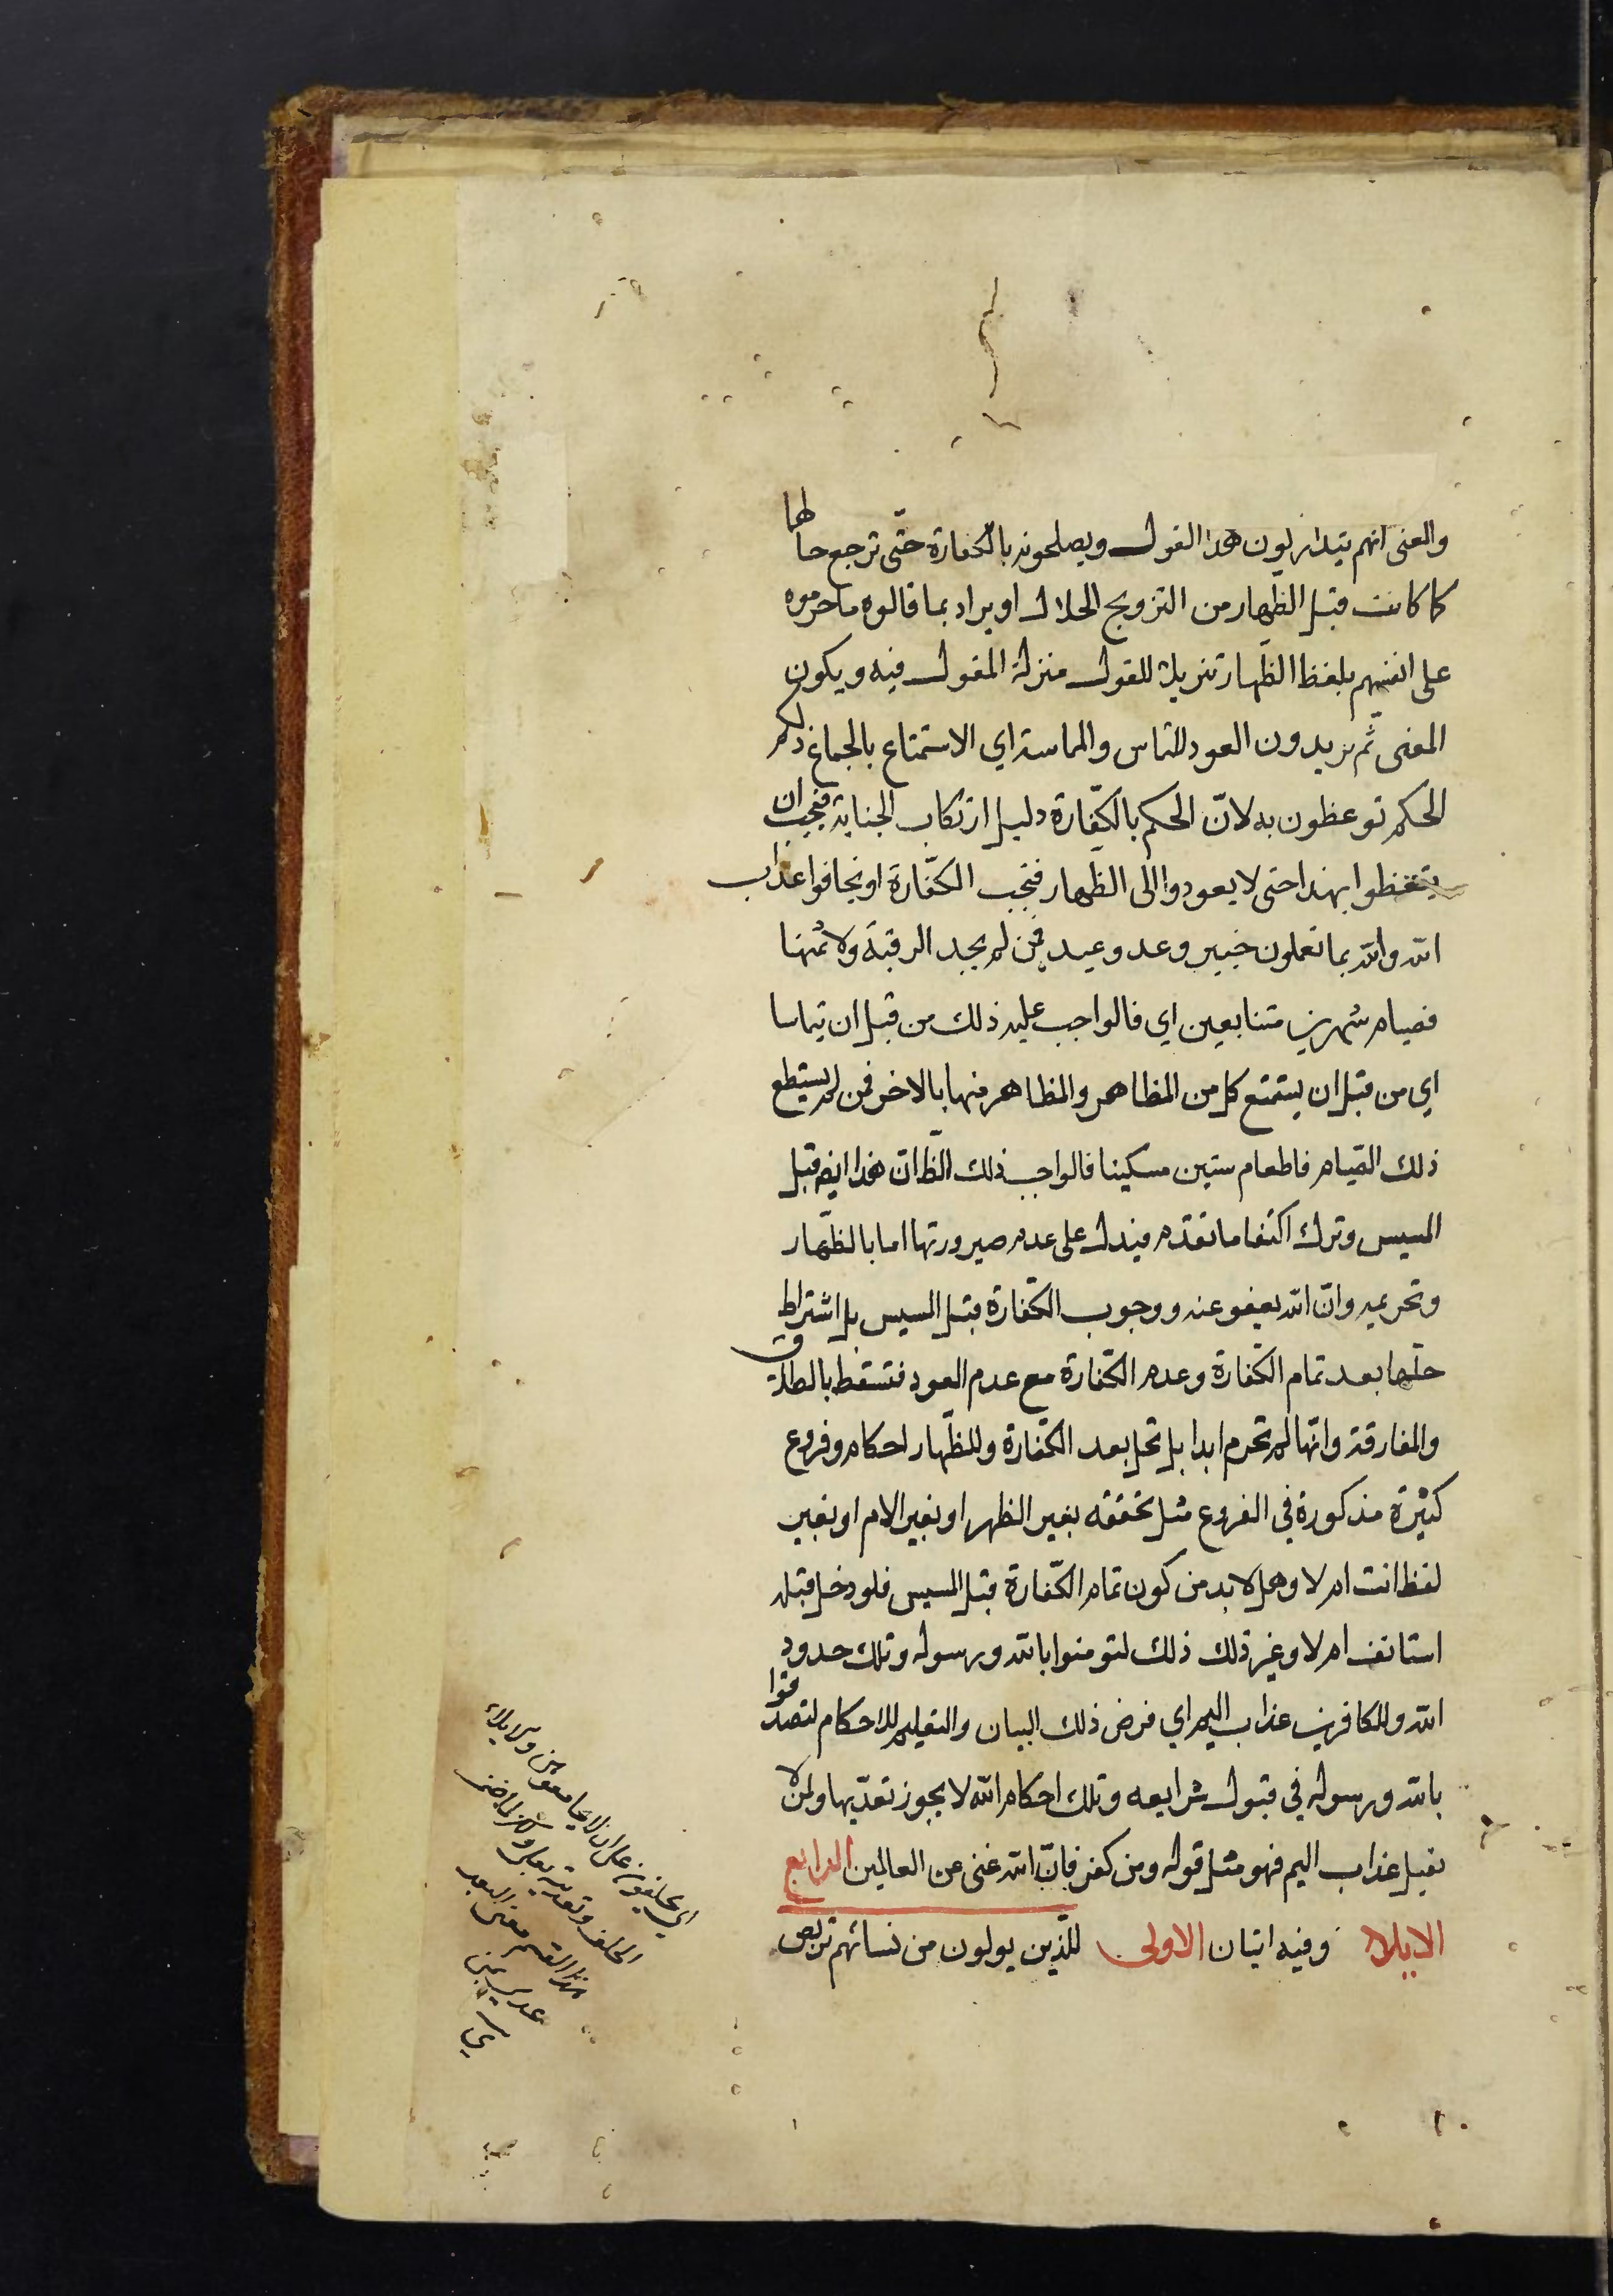 والمعنى انهم يتداركون هذا القول ويصلحونه بالكفارة حتّى ترجع حالها
كما كانت قبل الظّهار من التزويج الحلال او يراد بما قالوه ما حرموه
على انفسهم بلفظ الظّهار تنزيلا للقول منزلة المقول فيه ويكون
المعنى ثّم يريدون العود للتماس والمماسة اي الاستمتاع بالجماع ذلكم
الحكم توعظون به لانّ الحكم بالكفّارة دليل ارتكاب الجناية فيجب ان
يتعظوا بهذا حتى لا يعودوا الى الظهار فتجب الكفّارة او يخافوا عذاب
الله والله بما تعملون خبير وعد وعيد فمن لم يجد الرقبة ولا ثمنها
فصيام شهرين متتابعين اي فالواجب عليه ذلك من قبل ان يتماسا
اي من قبل ان يستمتع كل من المظاهر والمظاهر منها بالاخر فمن لم يستطع
ذلك الصّيام فاطعام ستين مسكينا فالواجب ذلك الظّ انّ هذا ايضا قبل
المسيس وترك اكتفا ما تقدّم فيدل على عدم صيرورتها اما بالظّهار
وتحريمه وانّ الله يعفو عنه ووجوب الكفّارة قبل المسيس بل اشتراط
حلّها بعد تمام الكفّارة وعدم الكفّارة مع عدم العود فتسقط بالطلاق
والمفارقة وانّها لم تحرم ابدا بل تحل بعد الكفّارة وللظّهار احكام وفروع
كثيرة مذكورة في الفروع مثل تحققه بغير الظهر او بغير الام او بغير
لفظ انت ام لا وهل لا بد من كون تمام الكفّارة قبل المسيس فلو دخل قبله
استانف ام لا وغير ذلك ذلك لتومنوا بالله ورسوله وتلك حدود
الله وللكافرين عذاب اليم اي فرض ذلك البيان والتعليم للاحكام لتصدقوا
بالله ورسوله في قبول شرايعه وتلك احكام الله لا يجوز تعدّيها ولمن لا
يقبل عذاب اليم فهو مثل قوله ومن كفر فانّ الله غنى عن العالمين الرابع
الايلاء وفيه ايتان الاولى للّذين يولون من نسائهم تربص
اي يحلفون على ان لا يجامعوهن والايلاء
الحلف وتعديته بعلى ولكن لما ضمن
هذا القسم معنى البعد
عدى بمن